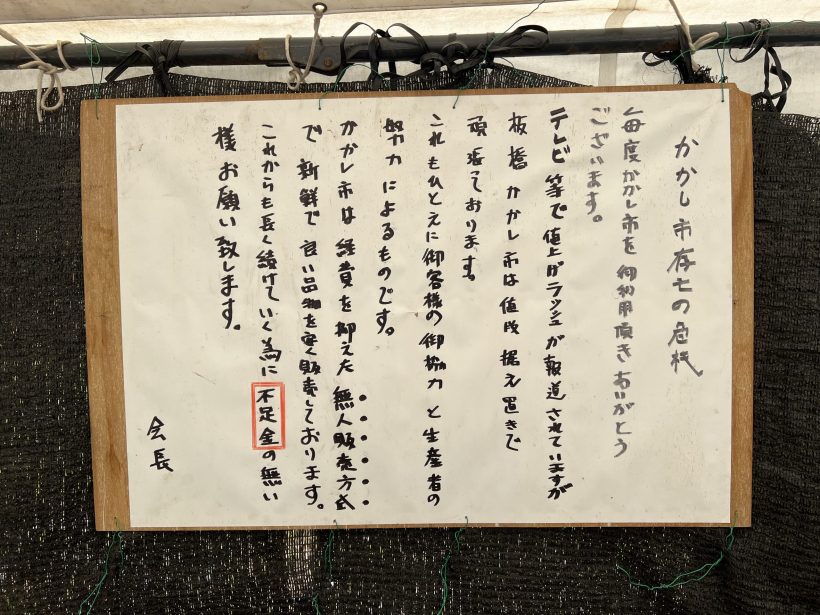 かかし市存亡の危機
毎度かかし市を御利用頂きありがとう
ございます。
テレビ等で値上げラッシュが報道されていますが
板橋かかし市は値段据え置きで
頑張っております。
これもひとえに御客様の御協力と生産者の
努力によるものです。
かかし市は経費を抑えた無人販売方式
で新鮮で良い品物を安く販売しております。
これからも長く続けていく為に不足金の無い
様お願い致します。
会長